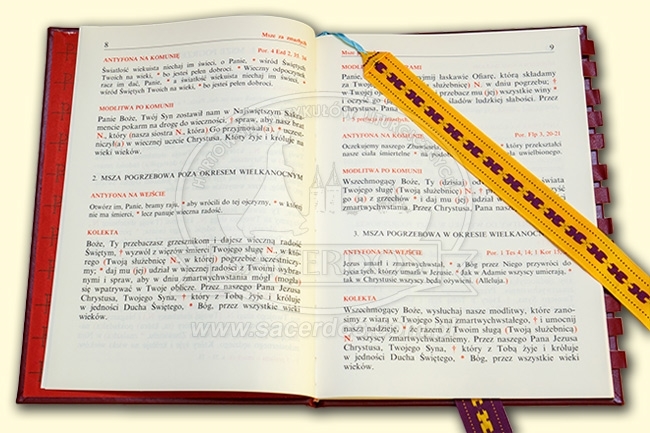 8 Msze za zmarłych
ANTYFONA NA KOMUNIĘ Por. 4 Ezd 2, 35. 34
Światłość wiekuista niechaj im świeci, o Panie, * wśród Świętych
Twoich na wieki, * bo jesteś pełen dobroci. * Wieczny odpoczynek
racz im dać, Panie, * a światłość wiekuista niechaj im świeci, *
wśród Świętych Twoich na wieki, * bo jesteś pełen dobroci.
MODLITWA PO KOMUNII
Panie Boże, Twój Syn zostawił nam w Najświętszym Sakra-
mencie pokarm na drogę do wieczności, † spraw, aby nasz brat
N., który (nasza siostra N., która) Go przyjmował(a), * uczest-
niczył(a) w wiecznej uczcie Chrystusa. Który żyje i króluje na
wieki wieków.
2. MSZA POGRZEBOWA POZA OKRESEM WIELKANOCNYM
ANTYFONA NA WEJŚCIE
Otwórz im, Panie, bramy raju, * aby wrócili do tej ojczyzny, * w której
nie ma śmierci, * lecz panuje wieczna radość.
KOLEKTA
Boże, Ty przebaczasz grzesznikom i dajesz wieczną radość
Świętym, † wyzwól z więzów śmierci Twojego sługę N., w któ-
rego (Twoją służebnicę N., w której) pogrzebie uczestniczy-
my; * daj mu (jej) udział w wiecznej radości z Twoimi wybra-
nymi i spraw, aby w dniu zmartwychwstania mógł (mogła)
się wpatrywać w Twoje oblicze. Przez naszego Pana Jezusa
Chrystusa, Twojego Syna, † który z Tobą żyje i króluje
w jedności Ducha Świętego, * Bóg, przez wszystkie wieki
wieków.
Msze 9
Panie, przyjmij łaskawie Ofiarę, którą składamy
za Twojego służebnicę) N. w dniu pogrzebu; †
w Twojej przebacz mu (jej) wszystkie winy *
i oczyść go śladów ludzkiej słabości. Przez
Chrystusa
ANTYFONA NA KOMUNIĘ Por. Flp 3, 20-21
Oczekujemy naszego Zbawiciela, który przekształci
nasze ciała śmiertelne * na podobieństwo uwielbionego.
MODLITWA PO KOMUNII
Wszechmogący Boże, Ty (dzisiaj) od świata
Twojego sługę (Twoją służebnicę) N.
go (ją) z grzechów * i daj mu (jej)
zmartwychwstania. Przez Chrystusa, Pana naszego.
3. MSZA POGRZEBOWA W OKRESIE WIELKANOCNYM
ANTYFONA NA WEJŚCIE Por. 1 Tes 4, 14; 1 Kor 15,
Jezus umarł i zmartwychwstał, * a Bóg przez Niego przywiedzie do
życia tych, którzy umarli w Jezusie. * Jak w Adamie wszyscy umierają,
tak w Chrystusie wszyscy będą ożywieni. (Alleluja.)
KOLEKTA
Wszechmogący Boże, wysłuchaj nasze modlitwy, które zano-
simy z wiarą w Twojego Syna zmartwychwstałego, † i umocnij
naszą nadzieję, * że razem z Twoim sługą (Twoją służebnicą)
N. wszyscy zmartwychwstaniemy. Przez naszego Pana Jezusa
Chrystusa, Twojego Syna, † który z Tobą żyje i króluje
w jedności Ducha Świętego, * Bóg, przez wszystkie wieki
wieków.
SACERDOS